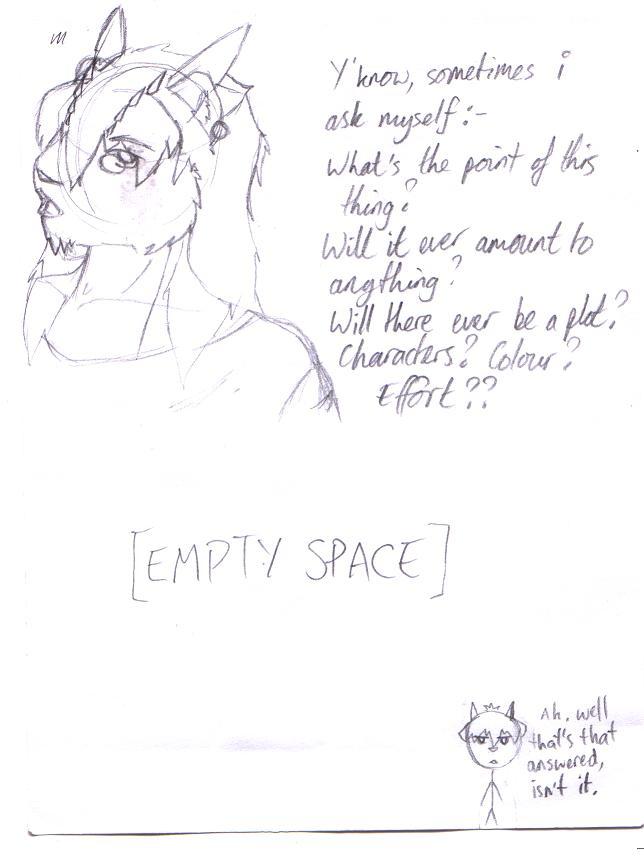 Y'know, sometimes i
ask myself:-
What's the point of this
thing?
Will it ever amount to
anything?
Will there ever be a plot?
Characters? Colour?
Effort??
[EMPTY SPACE]
Ah, well
that's that
answered,
isn't it.